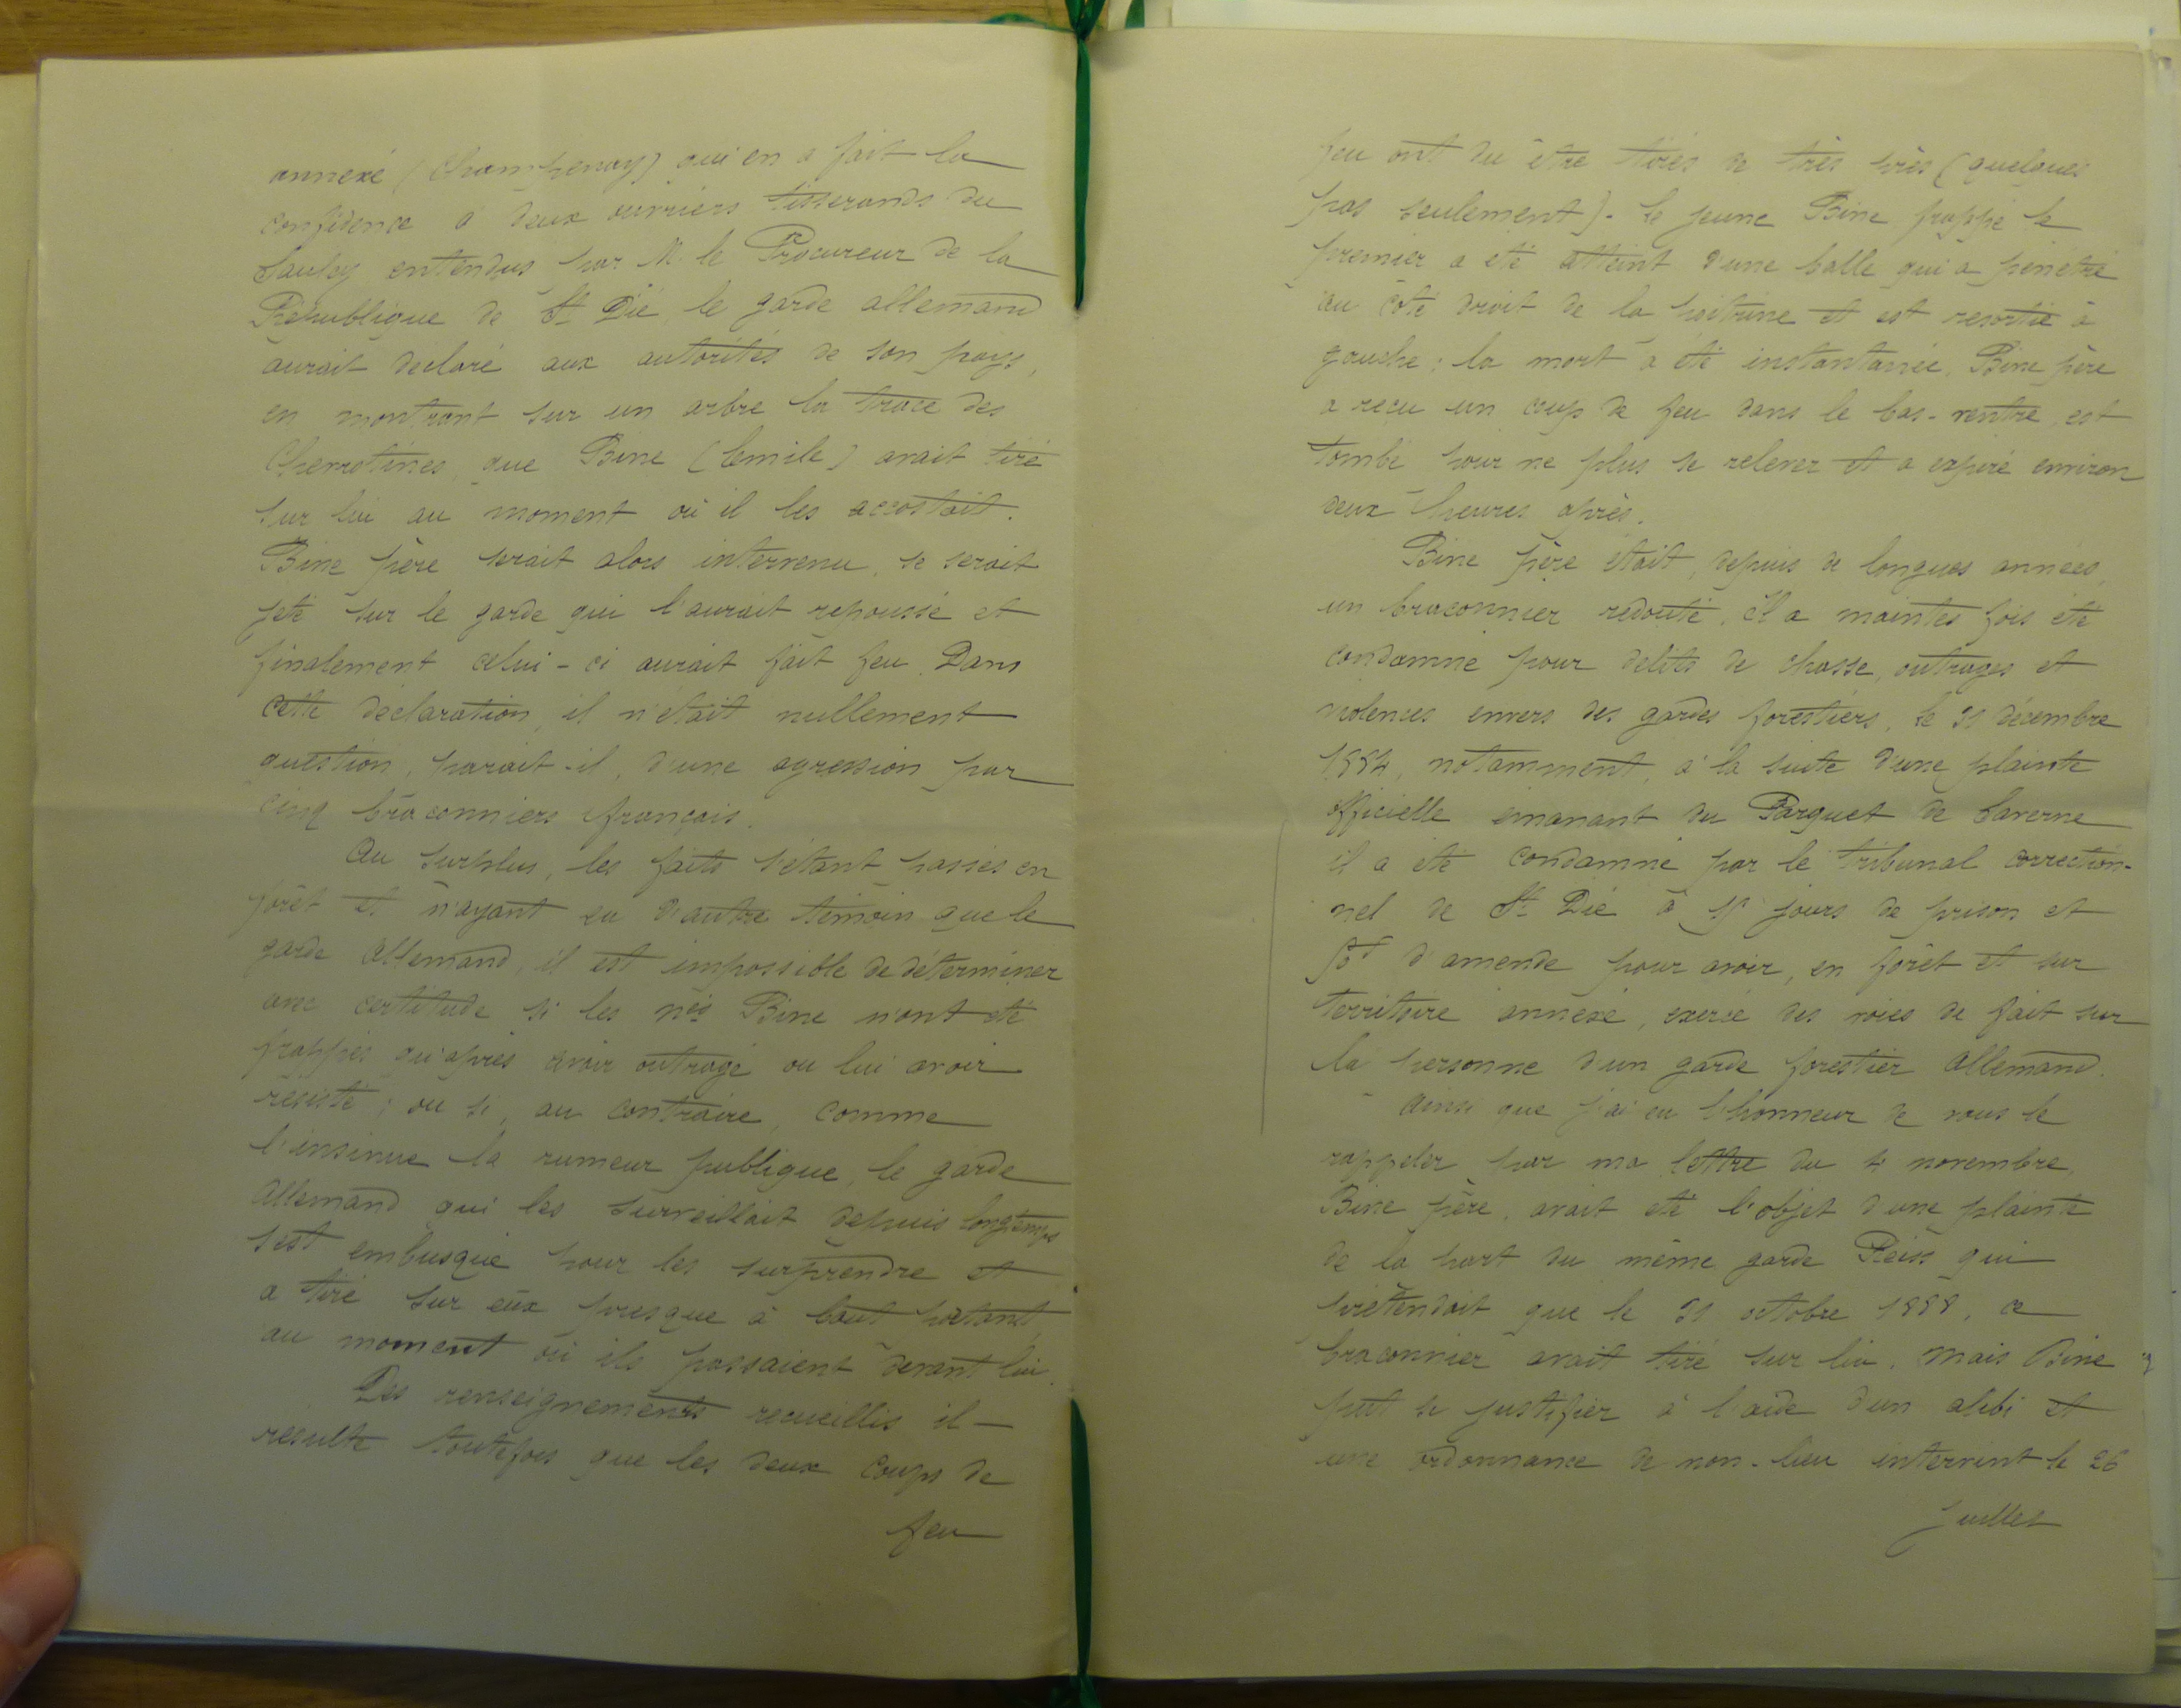 annexé (Champenay) qui en a fait la
confidence à deux ouvriers tisserands du
Saulcy entendus par M. le Procureur de la
République de St Dié, le garde allemand
aurait déclaré aux autorités de son pays,
en montrant sur un arbre la trace des
Chevrotines, que Bine (Emile) avait tiré
sur lui au moment où il les accostait.
Bine père serait alors intervenu, se serait
jeté sur le garde qui l'aurait repoussé et
finalement celui-ci aurait fait feu. Dans
cette déclaration, il n'était nullement
question, parait-il, d'une agression par
cinq braconniers français.
Au surplus, les faits s'étant passés en
forêt et n'ayant eu d'autre témoin que le
garde allemand, il est impossible de déterminer
avec certitude si les Bine n'ont été
frappés qu'après avoir outragé ou lui avoir
résisté ; ou si, au contraire, comme
l'insinue la rumeur publique, le garde
allemand qui les surveillait depuis longtemps
s'est embusqué pour les surprendre et
a tiré sur eux presque à bout portant,
au moment où ils passaient devant lui.
Des renseignements recueillis il
résulte toutefois que les deux coups de
feu
feu ont du être tirés de très près (quelques
pas seulement). Le jeune Bine frappé le
premier a été atteint d'une balle qui a pénétré
au côté droit de la poitrine et est ressortie à
gauche ; la mort a été instantanée. Bine père
a reçu un coup de feu dans le bas-ventre, est
tombé pour ne plus se relever et a expiré environ
deux heures après.
Bine père était, depuis de longues années,
un braconnier redouté, il a maintes fois été
condamné pour délits de chasse, outrages et
violences envers des gardes forestiers, le 31 décembre
1884, notamment, à la suite d'une plainte
officielle émanant du Parquet de Saverne
il a été condamné par le tribunal correction-
nel de St Dié à jours de prison et
d'amende pour avoir, en forêt et sur
territoire annexé, exercé des voies de fait sur
la personne d'un garde forestier allemand.
Ainsi que j'ai eu l'honneur de vous le
rappeler par ma lettre du 4 novembre,
Bine père, avait été l'objet d'une plainte
de la part du même garde Reiss qui
prétendait que le 31 octobre 1888, ce
braconnier avait tiré sur lui, mais Bine
put se justifier à l'aide d'un alibi et
une ordonnance de non-lieu intervint le 26
juillet